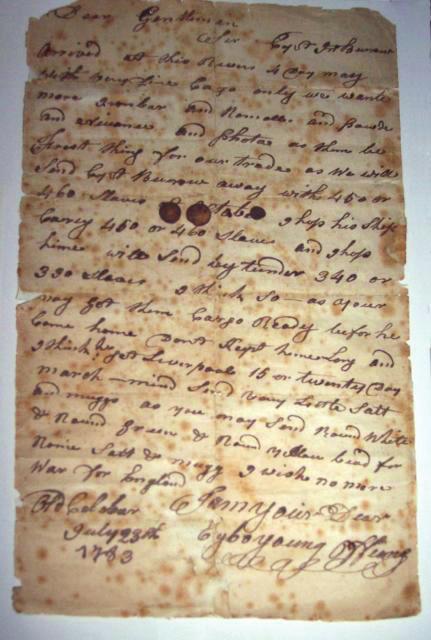 Dear Gentleman
Sir Capt Jn Burrow
arrived at this River 4 Day may
with very fine Cargo only we wante
more and Romalls and powde
and and photae as them be
finest thing for our trade as we will
Send Capt Burrow away with 450 or
460 Slaves I hop his Ship
Carry 450 or 460 Slaves and I hop
hime will Send by tender 340 or
330 Slaves I think So as your
may got them Cargo Ready befor he
Come home Dont kept hime Long and
I think he get Liverpool 15 or twenty Day
march mind Send very Little Salt
and muggs as you may Send Round White
& Round Green & Round yellow bead for
Romie Salt & mugg I wish no more
War for England
Old Calabar I am your Dear
July 23th Egbo Young Offiong
1783